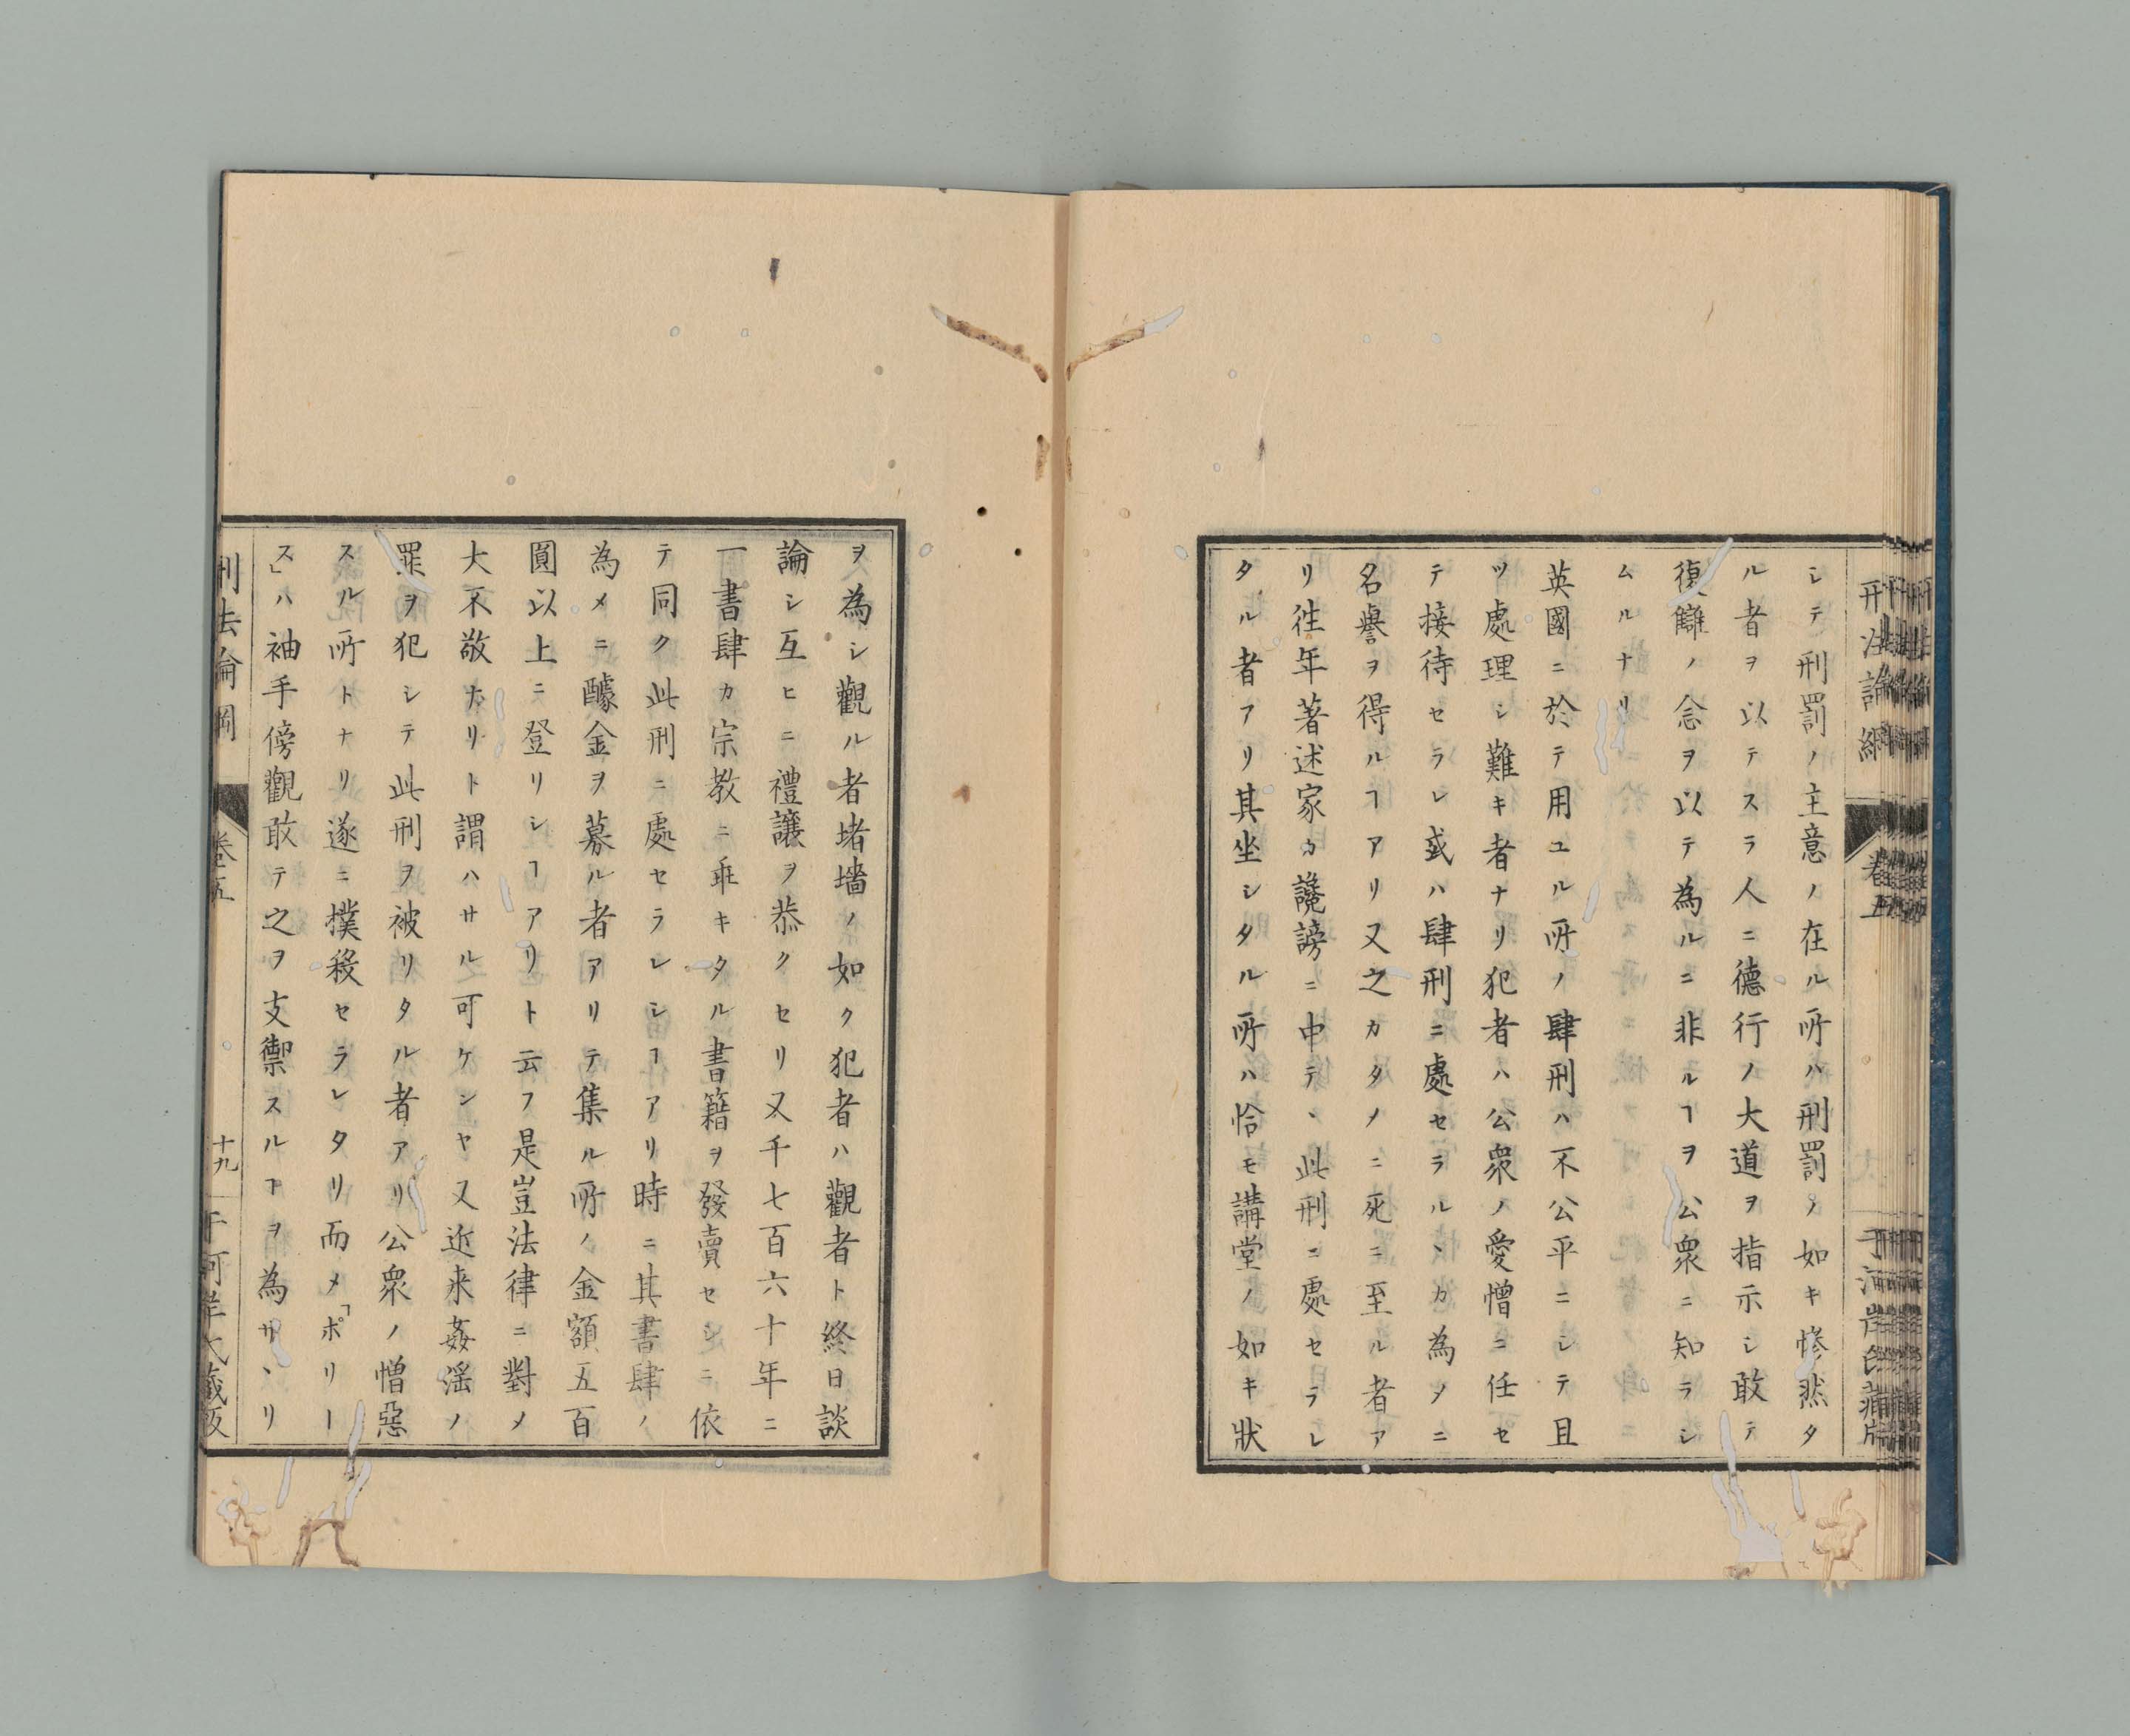 シテ刑罰ノ主意ノ在ル所ハ刑罰ノ如キ慘然タ
ル者ヲ以テスラ人ニ德行ノ大道ヲ指示シ敢テ
復讎ノ念ヲ以テ為ルニ非ルヿヲ公衆ニ知ラシ
ムルナリ
英國ニ於テ用ユル所ノ肆刑ハ不公平ニシテ且
ツ處理シ難キ者ナリ犯者ハ公衆ノ愛憎ニ任セ
テ接待セラレ或ハ肆刑ニ處セラルヽカ為タニ
名譽ヲ得ルヿアリ又之カタメニ死ニ至ル者ア
リ徃年著述家カ讒謗ニ中テヽ此刑ニ處セラレ
タル者アリ其坐シタル所ハ恰モ講堂ノ如キ狀
刑法論綱
卷五
ヲ為シ觀ル者堵墻ノ如ク犯者ハ觀者ト終日談
論シ互ヒニ禮讓ヲ恭クセリ又千七百六十年ニ
一書肆カ宗教ニ乖キタル書籍ヲ發賣セシニ依
テ同ク此刑ニ處セラレシヿアリ時ニ其書肆ノ
為メニ醵金ヲ募ル者アリテ集ル所ノ金額五百
圓以上ニ登リシヿアリト云フ是豈法律ニ對メ
大不敬ナリト謂ハサル可ケンヤ又近来姦淫ノ
罪ヲ犯シテ此刑ヲ被リタル者アリ公衆ノ憎惡
スル所トナリ遂ニ撲殺セラレタリ而メ「ポリー
ス」ハ袖手傍觀敢テ之ヲ支禦スルヿヲ為サヽリ
刑法論綱
卷五
十九